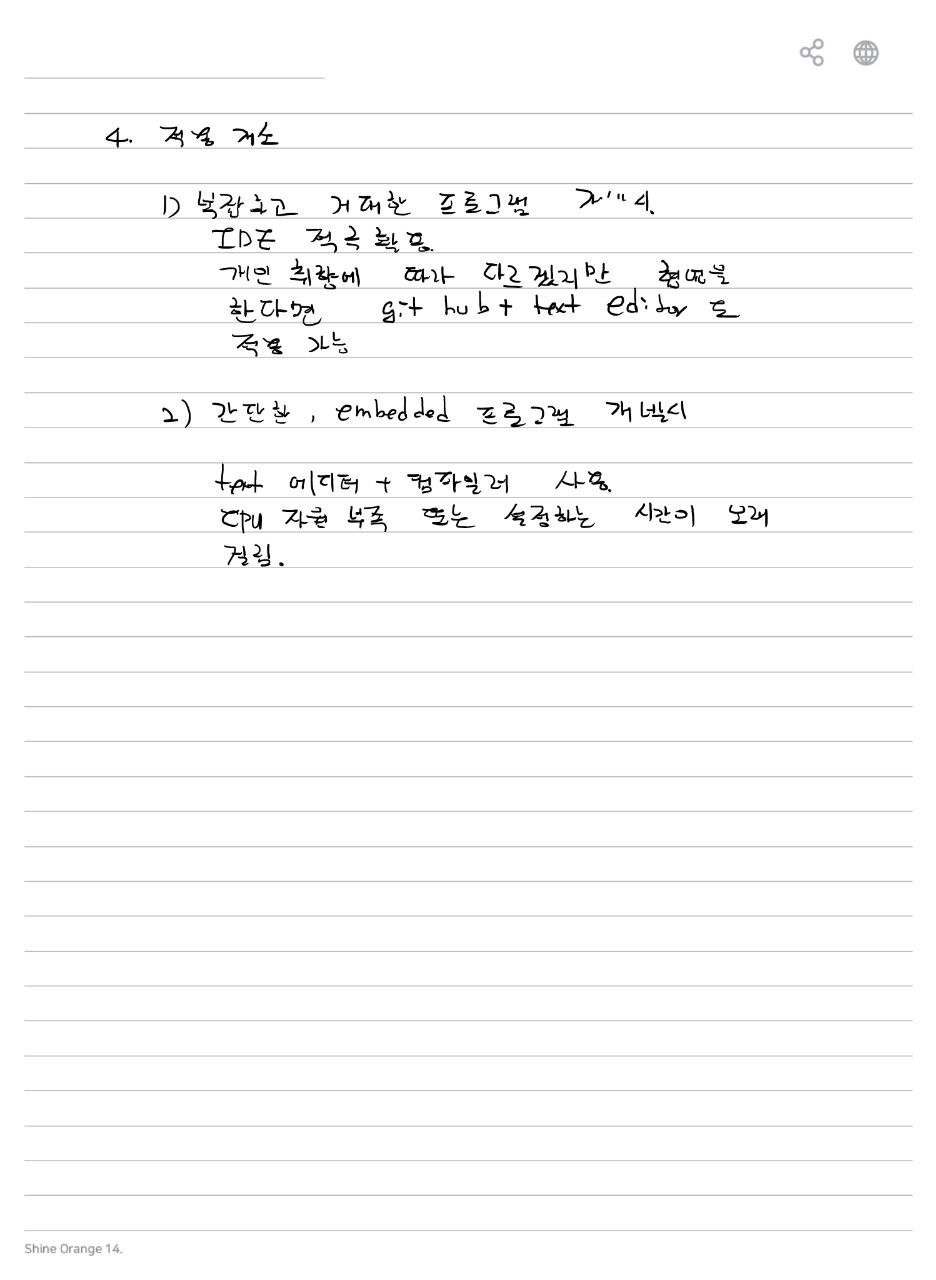 4. 적용 개소
1) 복잡하고 거대한 프로그램
IDE 적극 활용.
개인 취향에 따라 다르겠지만 협업을
한다면 git hub + text editor 도
적용 가능
2) 간단한, embedded 프로그램 개발시
text 에디터 + 컴파일러 사용.
CPU 자원 부족 또는 설정하는 시간이 오래
걸림.
Shine Orange 14.